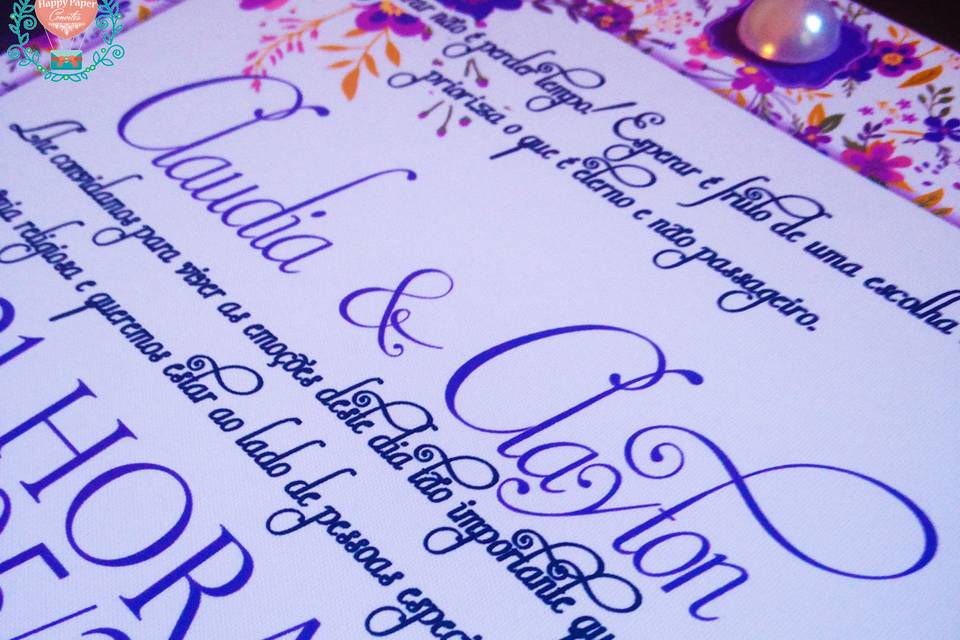 Happy Paper
Convites
não é perder tempo! Esperar é fruto de uma escolha
prioriza o que é eterno e não passageiro.
Claudia
&
Clayton
Lhe convidamos para viver as emoções deste dia tão importante
religiosa e queremos estar ao lado de pessoas
21 HORA